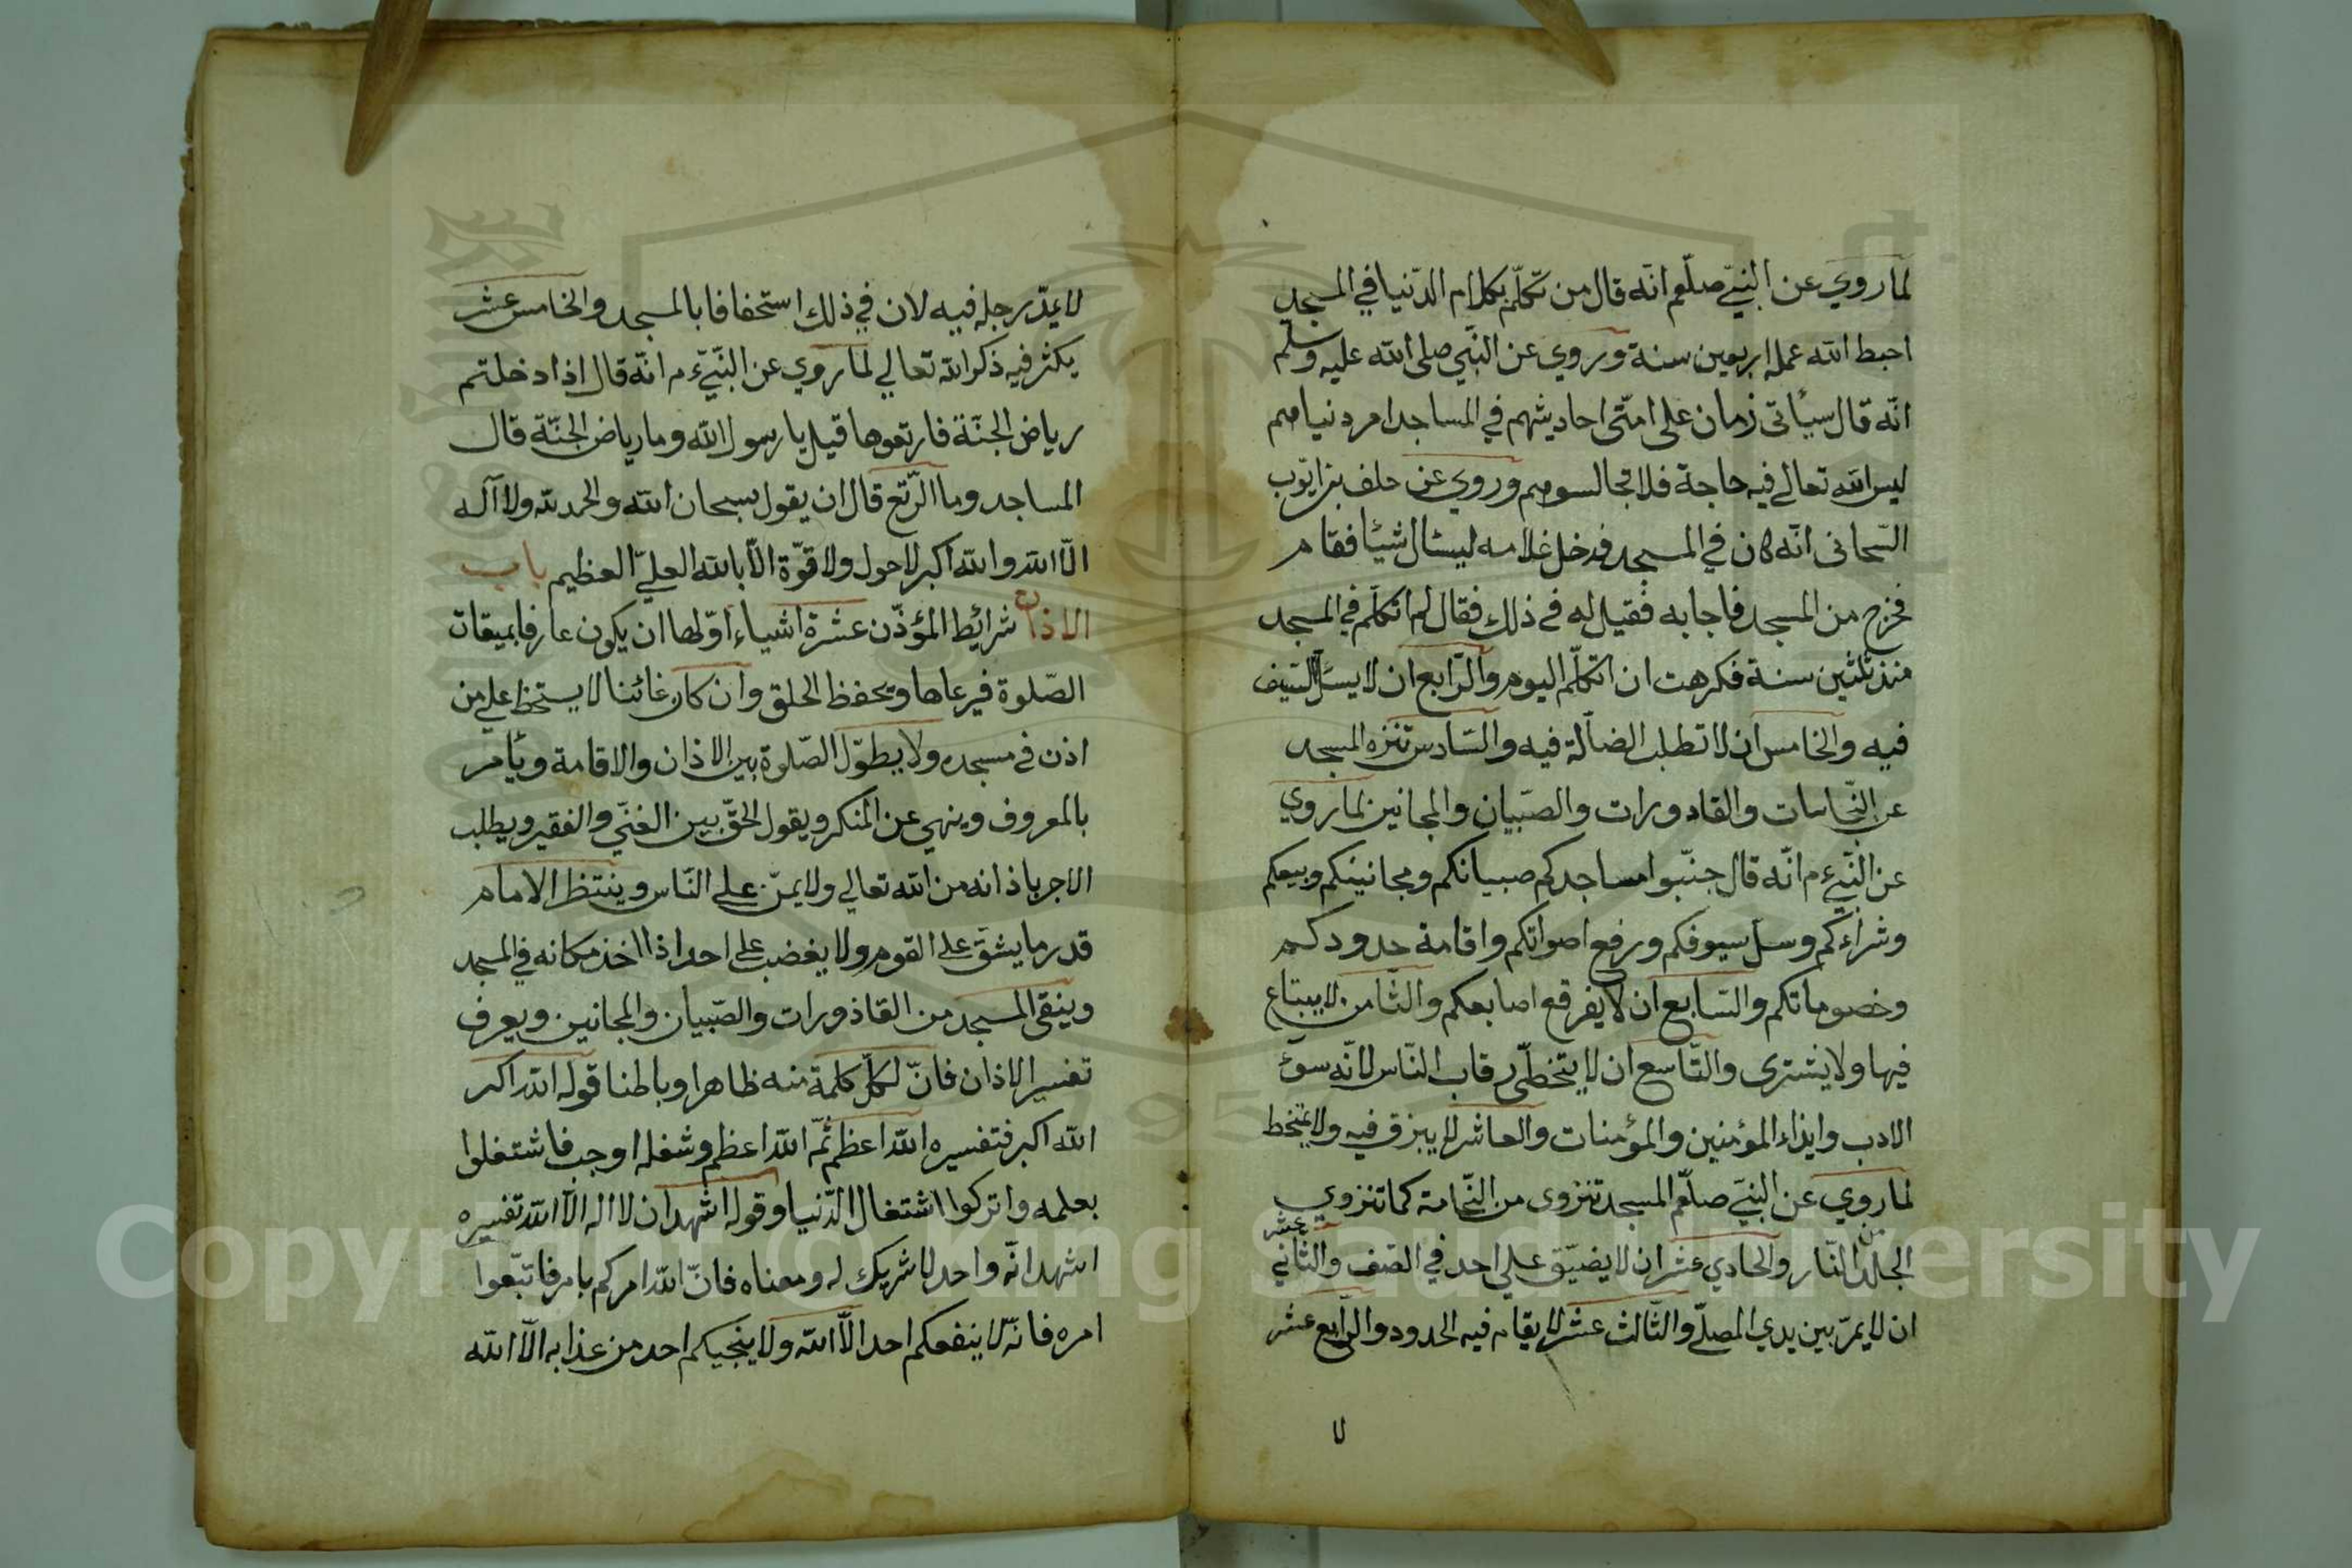 لما روي عن النبيّ صلّعم انّه قال من تكلّم بكلام الدّنيا في المسجد
احبط الله عمله اربعين سنة وروي عن النّبي صلى الله عليه وسلم
انّه قال سيأتى زمان على امّتى احاديثهم في المساجد امر دنياهم
ليس لله تعالى فيه حاجة فلا تجالسوهم وروي عن خلف بن ايّوب
انّه كان في المسجد فدخل غلامه ليسئال شيئا فقام
فخرج من المسجد فاجابه فقيل له فى ذلك فقال لم اتكلّم في المسجد
منذ ثلثين سنة فكرهت ان اتكلّم اليوم والرّابع ان لا يسلّ السّيف
فيه والخامس ان لا تطلب الضالّة فيه والسّادس تنزه المسجد
عن النّجاسات والقادورات والصّبيان والمجانين لما روي
عن النّبيّ ءم انّه قال جنّبوا مساجدكم صبيانكم ومجانينكم وبيعكم
وشراءكم وسلّ سيوفكم ورفع اصواتكم واقامة حدودكم
وخصوماتكم والسّابع ان لا يفرقع اصابعكم والثّامن لا يبتاع
فيها ولا يشترى والتّاسع ان لا يتخطّى رقاب النّاس لانّه سوء
الادب وايذاء المؤمنين والمؤمنات والعاشر لا يبزق فيه ولا يتمخط
لما روي عن النبيّ صلّعم المسجد تنزوى من النّخامة كما تنزوي
الجلد من النّار والحادي عشر ان لا يضيّق على احد في الصّف والثّاني عشر
ان لا يمرّ بين يدي المصلّي والثّالث عشر لا يقام فيه الحدود والرّابع عشر
لا
لا يمدّ رجله فيه لان في ذلك استخفافا بالمسجد والخامس عشر
يكثر فيه ذكر الله تعالي لما روي عن النّبيّ ءم انّه قال اذا دخلتم
رياض الجنّة فارتعوها قيل يا رسول الله وما رياض الجنّة قال
المساجد وما الرّتع قال ان يقول سبحان الله والحمد لله ولا آله
الّا الله والله اكبر لا حول ولا قوّة الّا بالله العليّ العظيم باب
الاذان شرائط المؤذّن عشرة اشياء اوّلها ان يكون عارفا بميقات
الصّلوة فيرعاها ويحفظ الحلق وان كان غائبا لا يسخط على من
اذن فى مسجده ولا يطوّل الصّلوة بين الاذان والاقامة ويأمر
بالمعروف وينهي عن المنكر ويقول الحقّ بين الغنيّ والفقير ويطلب
الاجر باذانه من الله تعالي ولا يمنّ على النّاس وينتظر الامام
قدر ما يشقّ على القوم ولا يغضب على احد اذا اخذ مكانه في المسجد
وينقى المسجد من القاذورات والصّبيان والمجانين ويعرف
تفسير الاذان فانّ لكلّ كلمة منه ظاهرا وباطنا قوله الله اكبر
الله اكبر فتفسيره الله اعظم ثمّ الله اعظم وشغله اوجب فاشتغلوا
بعلمه واتركوا اشتغال الدّنيا وقوله اشهد ان لا اله الّا الله تفسيره
اشهد انّه واحد لا شريك له ومعناه فانّ الله امركم بامر فاتبّعوا
امره فانّه لا ينفعكم احد الّا الله ولا ينجيكم احد من عذابه الّا الله
Copyright © King Saud University